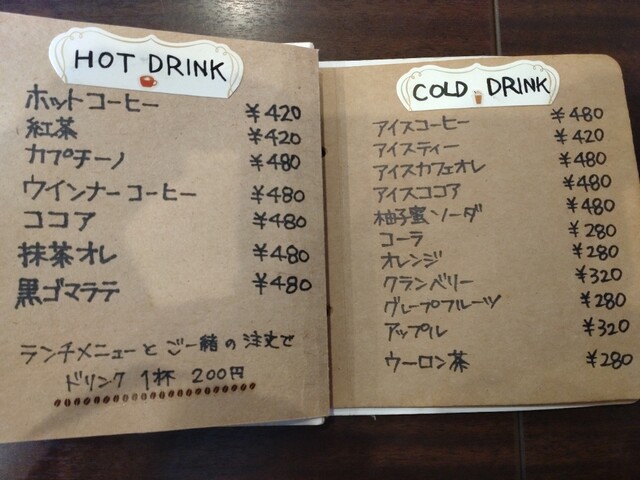 HOT DRINK
ホットコーヒー ¥420
紅茶 ¥420
カプチーノ ¥480
ウインナーコーヒー ¥480
ココア ¥480
抹茶オレ ¥480
黒ゴマラテ ¥480
ランチメニューとご一緒の注文で
ドリンク 1杯 200円
COLD DRINK
アイスコーヒー ¥480
アイスティー ¥420
アイスカフェオレ ¥480
アイスココア ¥480
柚子蜜ソーダ ¥480
コーラ ¥280
オレンジ ¥280
クランベリー ¥320
グレープフルーツ ¥280
アップル ¥320
ウーロン茶 ¥280